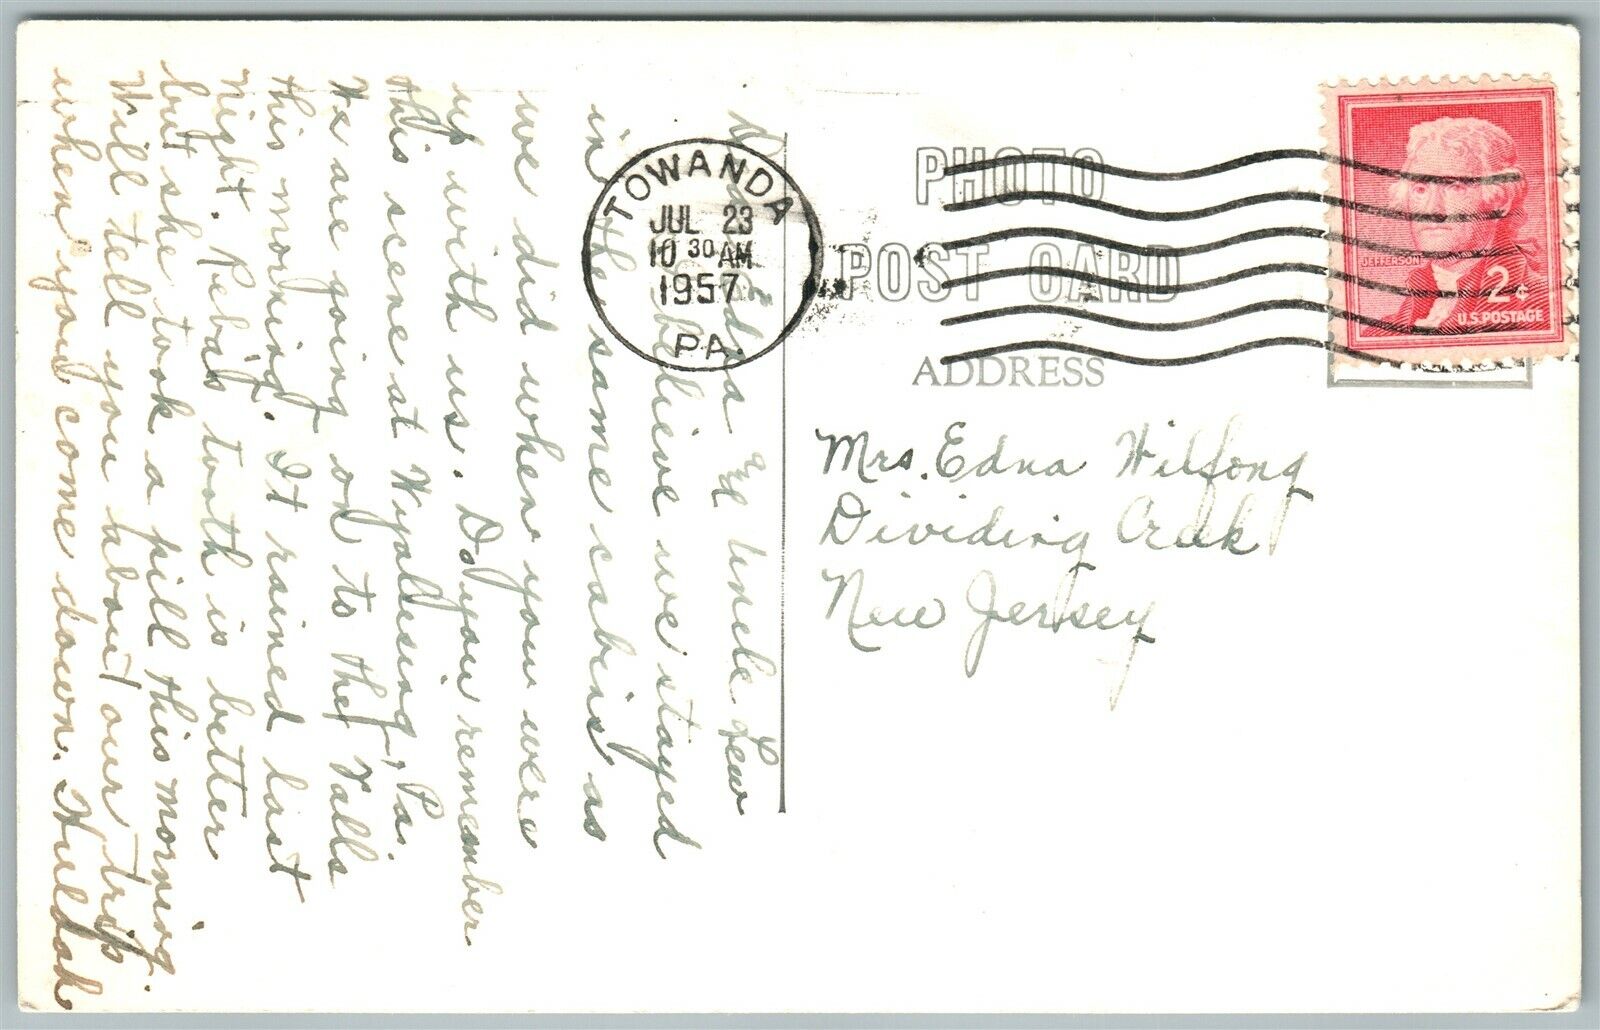 Dear Edna & Uncle Lew
I believe we stayed
in the same cabins as
we did when you were
up with us. Do you remember
this scene at Wyalusing, Pa.
We are going on to the Falls
this morning. It rained last
Night. Reba's tooth is better
but she took a pill this morning.
Will tell you about our trip
when you come down. Huldah
TOWANDA
JUL 23
10 30 AM
1957
PA.
PHOTO
POST CARD
ADDRESS
JEFFERSON
2¢
U.S. POSTAGE
Mrs. Edna Wilfong
Dividing Creek
New Jersey